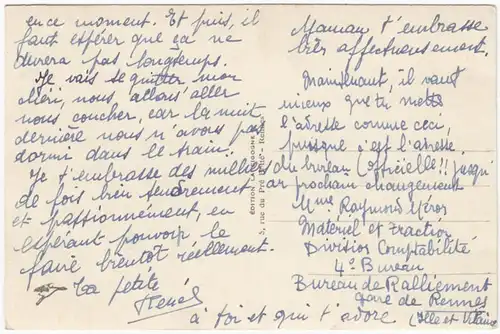 en ce moment. Et puis, il
faut espérer que ça ne
durera pas longtemps.
Je vais te quitter mon
chéri, nous allons aller
nous coucher, car la nuit
dernière nous n'avons pas
dormi dans le train.
Je t'embrasse des milliers
de fois bien tendrement
et passionnément, en
espérant pouvoir le
faire bientôt réellement.
Ta petite
Renée
à toi et qui t'adore
5, rue du Pré Rennes
Maman t'embrasse
très affectueusement.
Maintenant, il vaut
mieux que tu mettes
l'adresse comme ceci,
puisque c'est l'adresse
du bureau (officielle!! jusqu'
au prochain changement
Mme Raymond
Matériel et Traction
Division Comptabilité
4° Bureau
Bureau de Ralliement
gare de Rennes
(Ille et Vilaine